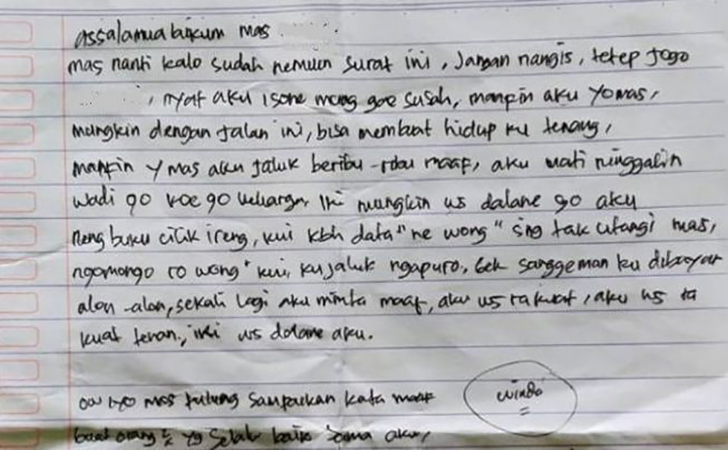 assalamualaikum mas
mas nanti kalo sudah nemuin surat ini, Jangan nangis, tetep jogo
, nyat aku isone mung gae susah, maapin aku yo mas,
mungkin dengan jalan ini, bisa membuat hidup ku tenang,
maapin y mas aku jaluk beribu-ribu maaf, aku mati ninggalin
wadi go koe go keluarga. Ini mungkin us dalane go aku
neng buku cilik ireng, kui kbh data" ne wong" sing tak utangi mas,
ngomongo ro wong" kui, ku jaluk ngapuro, bek sanggeman ku dibayar
alon-alon, sekali lagi aku minta maaf, aku us ra kuat, aku us ra
kuat tenan, ini us dalane aku.
oh iyo mas tulung sampaikan kata maaf
buat orang2 yg baik sama aku,